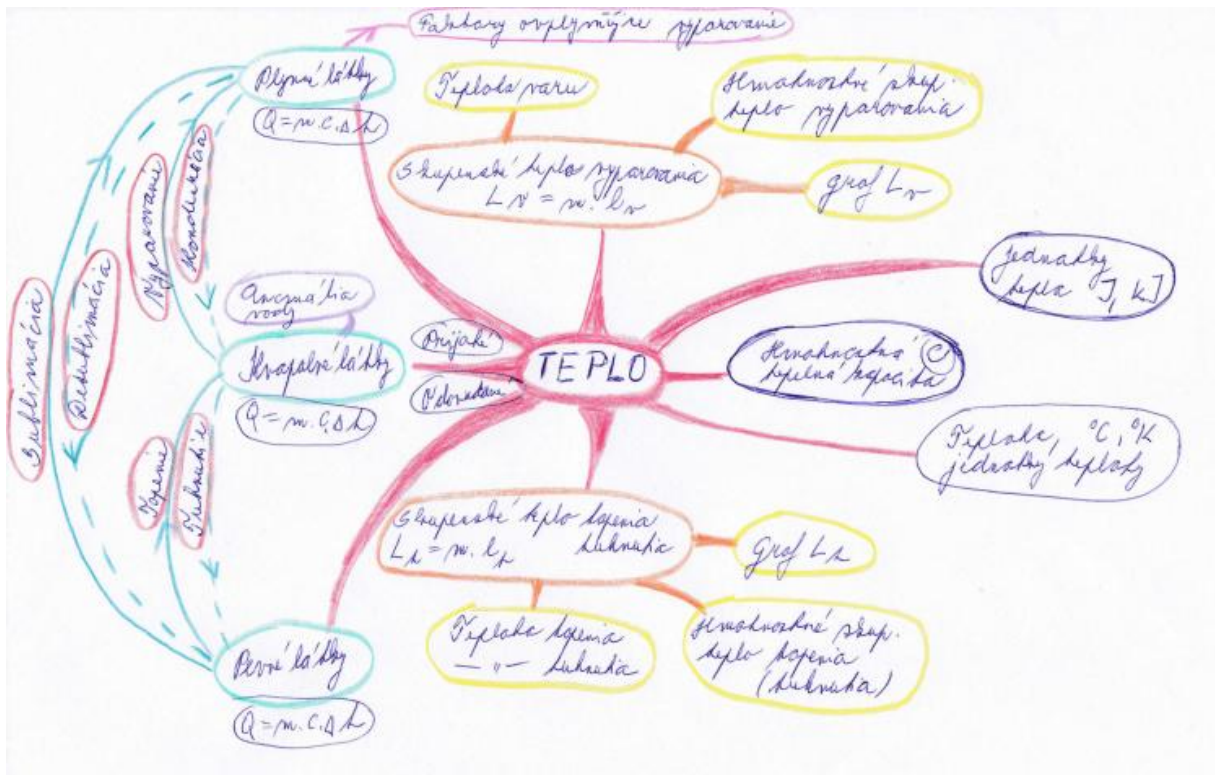 Faktory ovplyvňujúce vyparovanie
Plynné látky
Q = m.c.Δt
Teplota varu
Hmotnostné skup.
teplo vyparovania
Skupenské teplo vyparovania
Lv = m. lv
graf Lv
Vyparovanie
Kondenzácia
Sublimácia
Desublimácia
Anomália
vody
Kvapalné látky
Q = m.c.Δt
Prijaté
Odovzdané
TEPLO
jednotky
tepla J, kJ
Hmotnostná c
tepelná kapacita
Teplota, °C, °K
jednotky teploty
Topenie
Tuhnutie
Skupenské teplo topenia
Lt = m. lt tuhnutia
graf Lt
Teplota topenia
— " — tuhnutia
Hmotnostné skup.
teplo topenia
(tuhnutia)
Pevné látky
Q = m.c.Δt